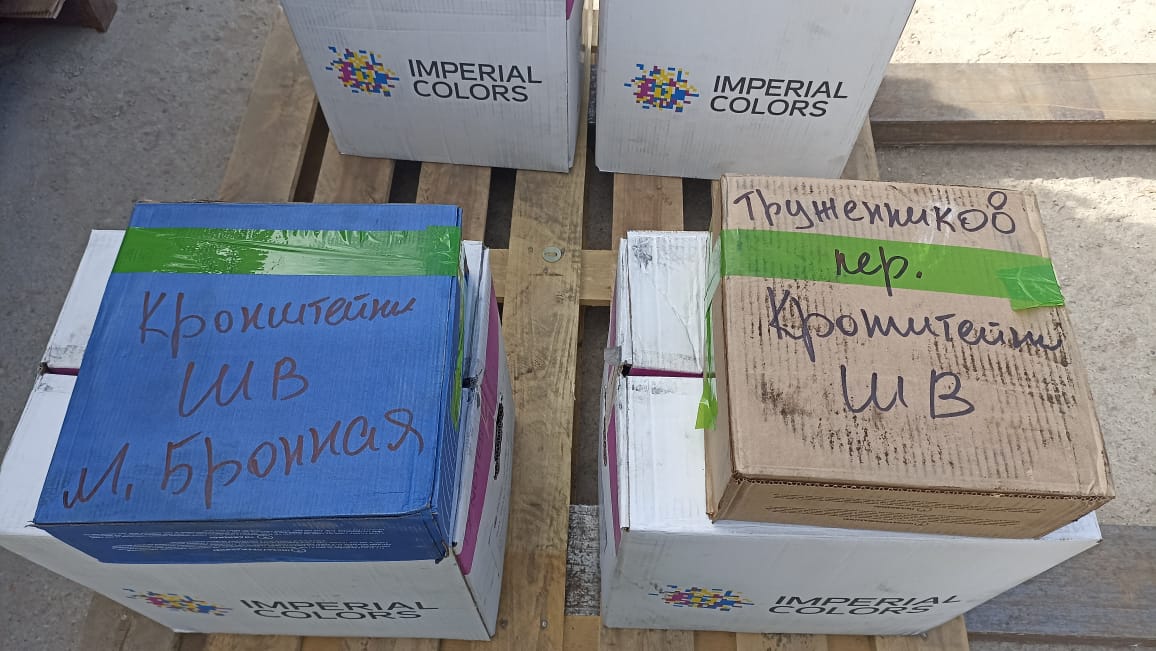 IMPERIAL
COLORS
IMPERIAL
COLORS
Кронштейны
ШВ
М. Бронная
Труженников
пер.
Кронштейны
ШВ
IMPERIAL
COLORS
IMPERIAL
COLORS